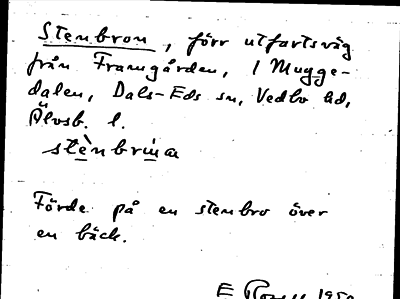 Stenbron, förr utfartsväg
från Framgården, i Mugge-
dalen, Dals-Eds sn, Vedbo hd,
Älvsb. l.
stènbrina
Förde på en stenbro över
en bäck.
E 1950